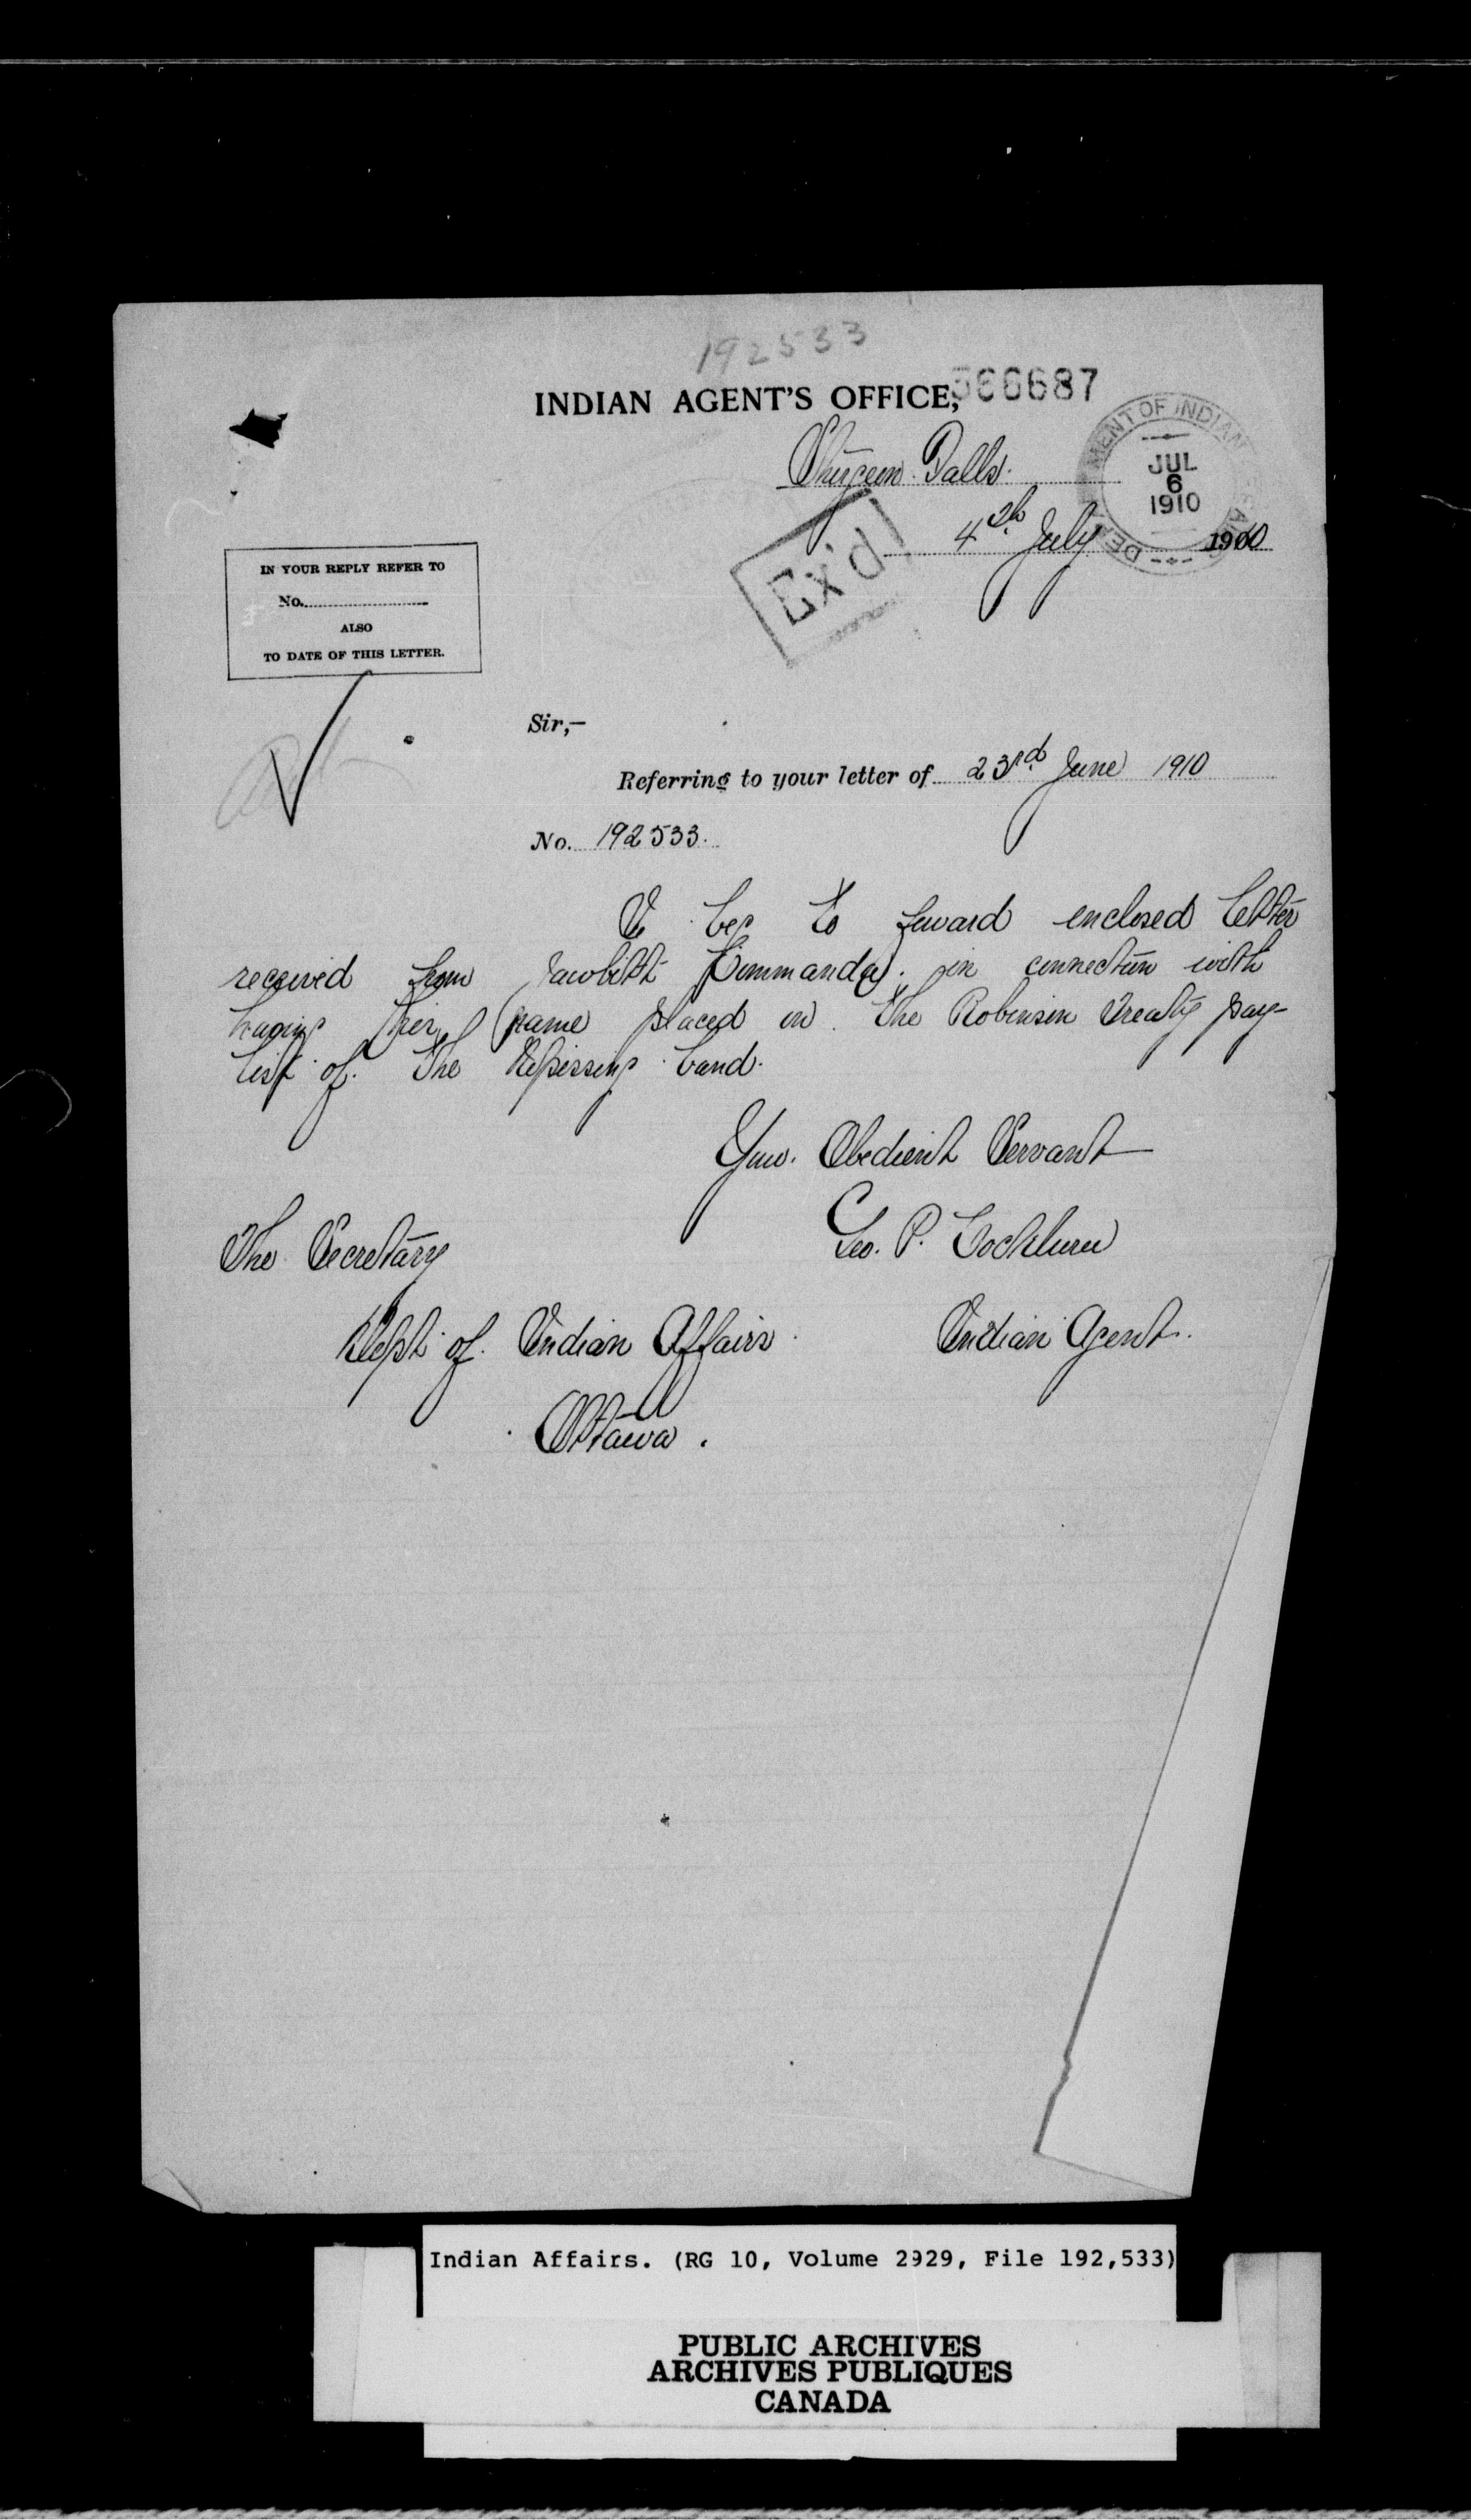 192533
INDIAN AGENT'S OFFICE,
366687
Sturgeon Falls.
4th July 1910
DEPARTMENT OF INDIAN AFFAIRS
JUL
6
1910
Ex'd
IN YOUR REPLY REFER TO
No.
ALSO
TO DATE OF THIS LETTER.
Sir,—
Referring to your letter of 23rd June 1910
No. 192533.
I beg to forward enclosed letter
received from Commanda, in connection with
having her name placed on the Robinson Treaty pay-
list of the Nipissing band.
Your Obedient Servant
Geo. P. Cockburn
Indian Agent.
The Secretary
Dept. of Indian Affairs
Ottawa.
Indian Affairs. (RG 10, Volume 2929, File 192,533)
PUBLIC ARCHIVES
ARCHIVES PUBLIQUES
CANADA